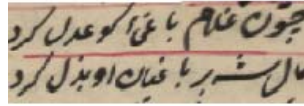 چون غلام باغی کو عدل کرد
مال شه بر باغیان او بذل کرد